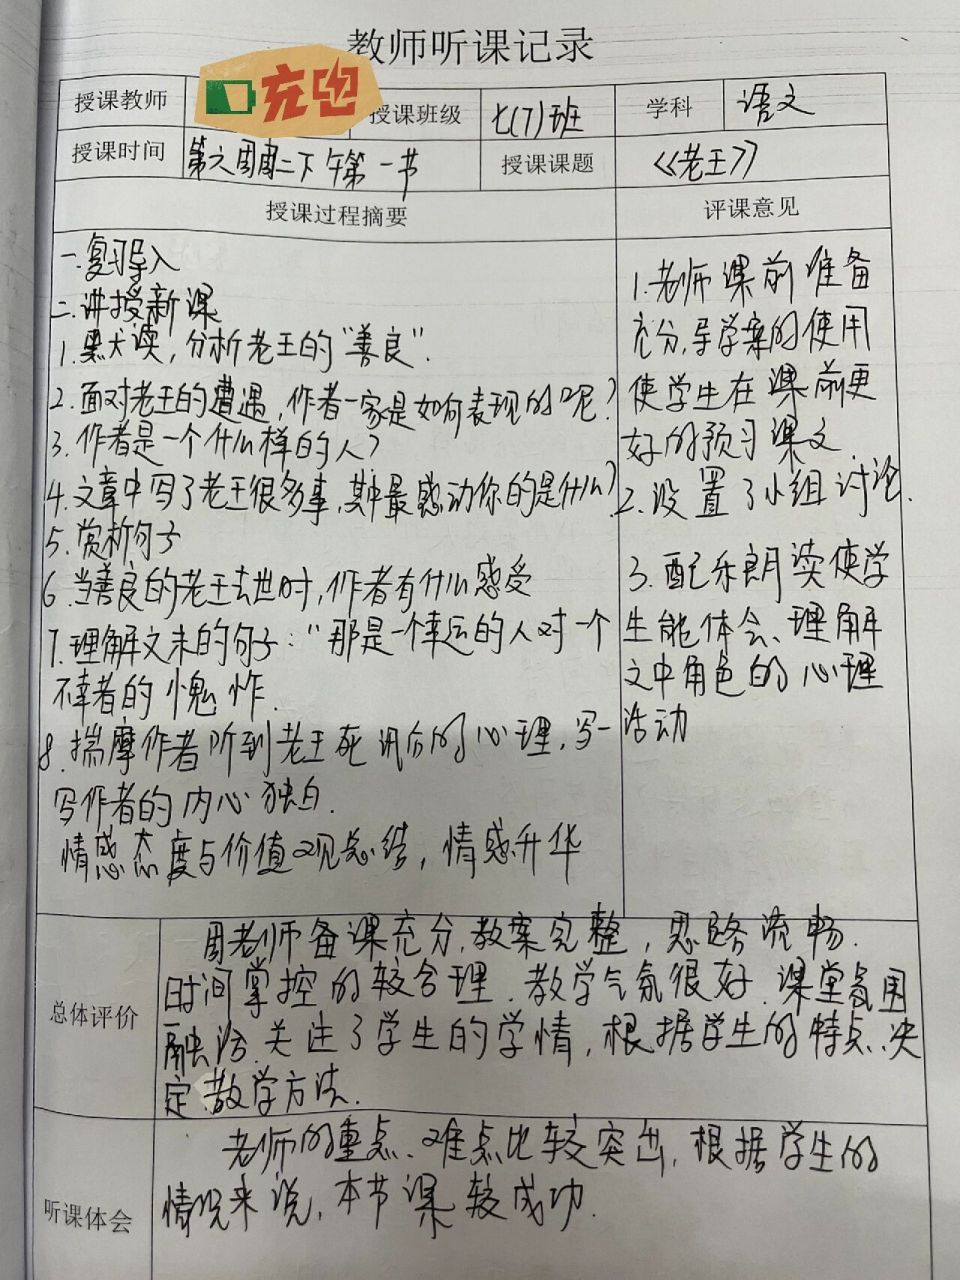 教师听课记录
授课教师 充电 授课班级 七(7)班 学科 语文
授课时间 第六周周二下午第一节 授课课题 《老王》
授课过程摘要 评课意见
一.复习导入
二.讲授新课
1.黑大读，分析老王的“善良”.
2.面对老王的遭遇,作者一家是如何表现的呢？
3.作者是一个什么样的人？
4.文章中写了老王很多事,其中最感动你的是什么？
5.赏析句子
6.当善良的老王去世时,作者有什么感受
7.理解文末的句子：“那是一个幸运的人对一个
不幸者的愧怍.
8.揣摩作者听到老王死讯后的心理,写一
写作者的内心独白.
情感态度与价值观总结，情感升华
1.老师课前准备
充分,导学案的使用
使学生在课前更
好的预习课文
2.设置了小组讨论.
3.配乐朗读使学
生能体会、理解
文中角色的心理
活动
总体评价
周老师备课充分,教案完整，思路流畅.
时间掌控的较合理.教学气氛很好.课堂氛围
融洽.关注了学生的学情,根据学生的特点、决
定教学方法.
听课体会
老师的重点、难点比较突出,根据学生的
情况来说,本节课较成功.